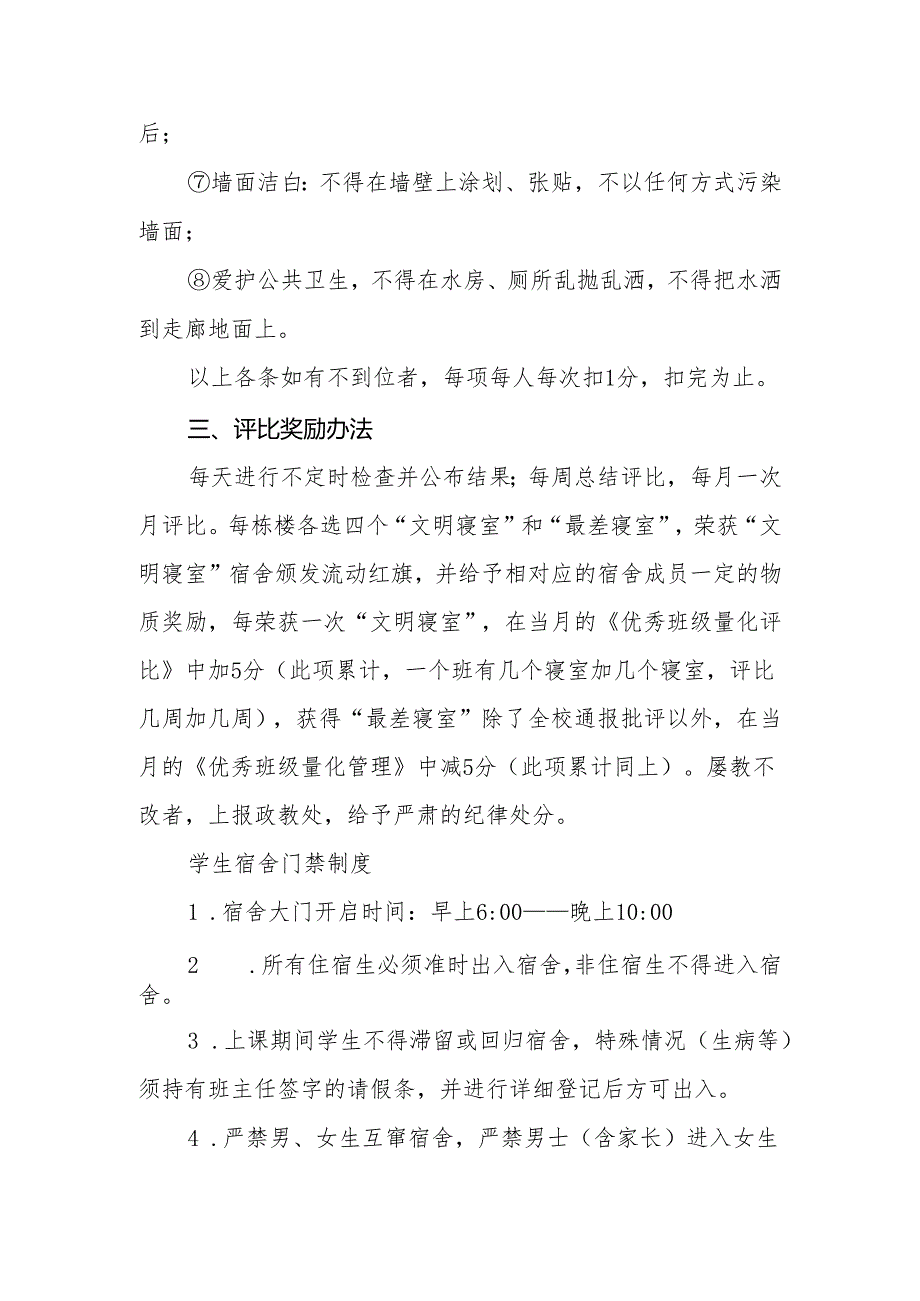 后；
⑦墙面洁白：不得在墙壁上涂划、张贴，不以任何方式污染
墙面；
⑧爱护公共卫生，不得在水房、厕所乱抛乱洒，不得把水洒
到走廊地面上。
以上各条如有不到位者，每项每人每次扣1分，扣完为止。
三、评比奖励办法
每天进行不定时检查并公布结果；每周总结评比，每月一次
月评比。每栋楼各选四个“文明寝室”和“最差寝室”，荣获“文
明寝室”宿舍颁发流动红旗，并给予相对应的宿舍成员一定的物
质奖励，每荣获一次“文明寝室”，在当月的《优秀班级量化评
比》中加5分（此项累计，一个班有几个寝室加几个寝室，评比
几周加几周），获得“最差寝室”除了全校通报批评以外，在当
月的《优秀班级量化管理》中减5分（此项累计同上）。屡教不
改者，上报政教处，给予严肃的纪律处分。
学生宿舍门禁制度
1 .宿舍大门开启时间：早上6:00——晚上10:00
2 .所有住宿生必须准时出入宿舍,非住宿生不得进入宿
舍。
3 .上课期间学生不得滞留或回归宿舍，特殊情况（生病等）
须持有班主任签字的请假条，并进行详细登记后方可出入。
4 .严禁男、女生互窜宿舍，严禁男士（含家长）进入女生